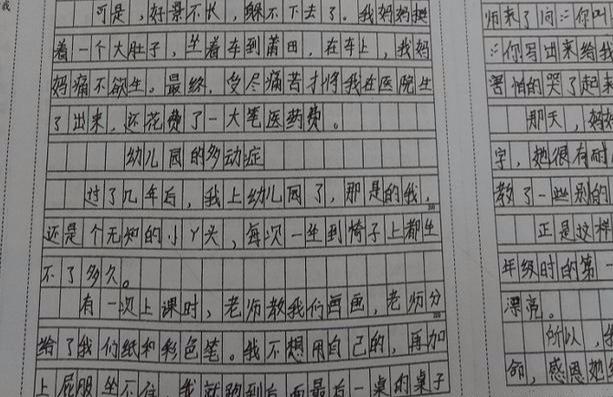 可是，好景不长，躲不下去了。我妈妈挺
着一个大肚子，坐着车到莆田，在车上，我妈
妈痛不欲生。最终，受尽痛苦才将我在医院生
了出来，还花费了一大笔医药费。
幼儿园的多动症
过了几年后，我上幼儿园了，那是的我，
还是个无知的小丫头，每次一坐到椅子上都坐
不了多久。
有一次上课时，老师教我们画画，老师分
给了我们纸和彩色笔。我不想用自己的，再加
上屁股坐不住，我就跑到后面最后一桌的桌子
师来了问：“你叫
：“你写出来给我
害怕的哭了起来
那天，妈妈
字，她很有耐
教了一些别的
正是这样
年级时的第一
漂亮。
所以，我
命，感恩她